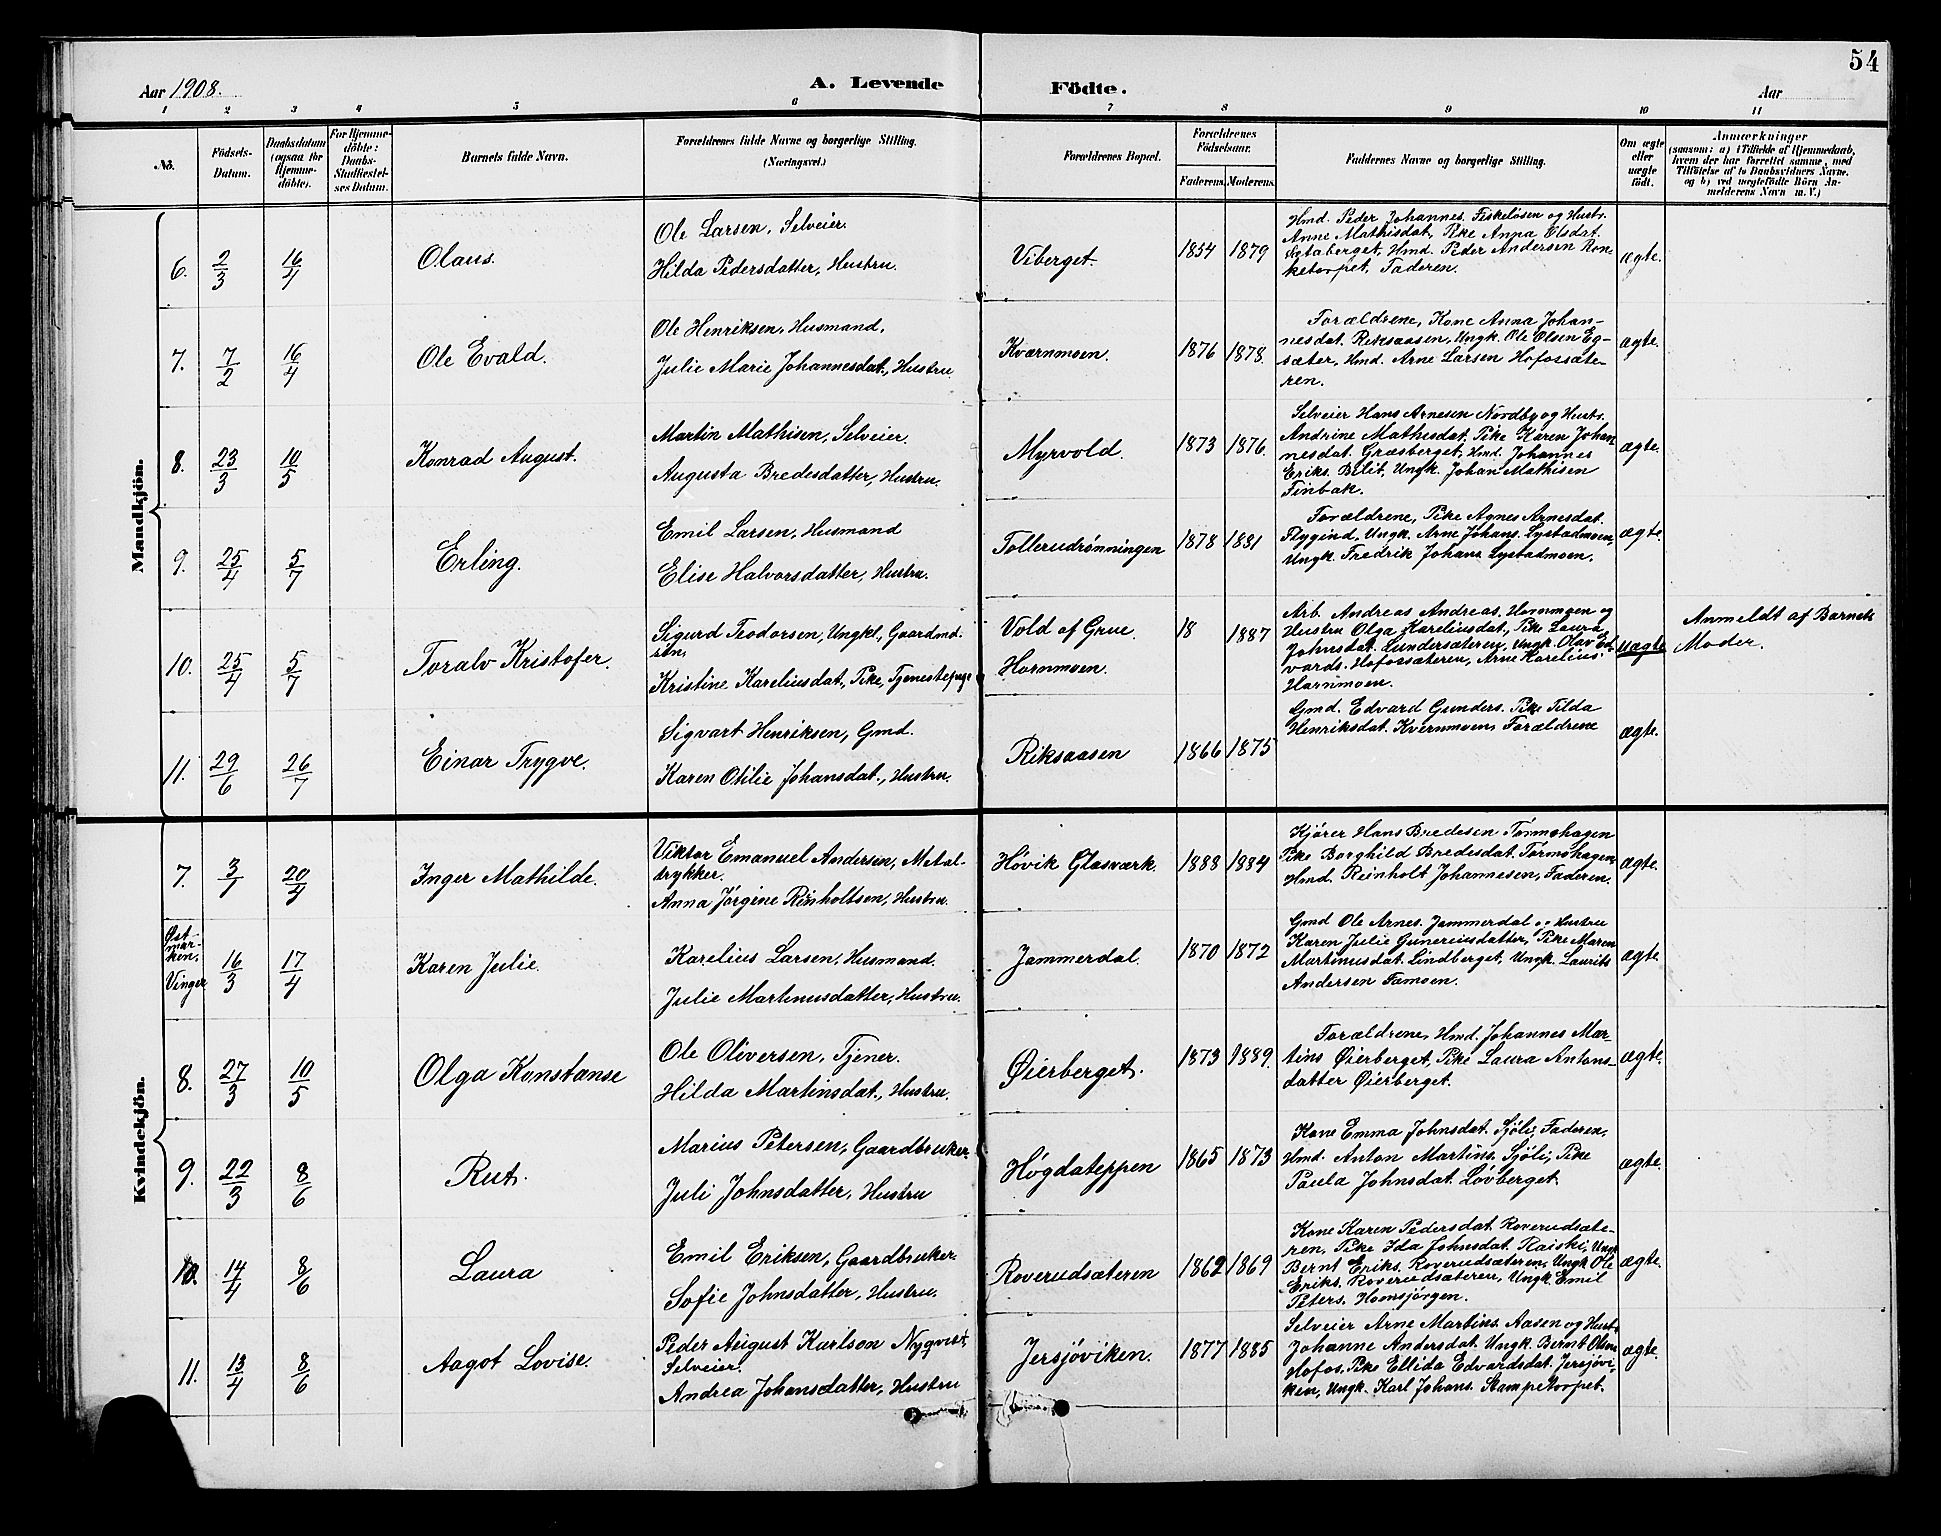 54
Aar 1908.
A. Levende Födte.
Aar
1 2 3 4 5 6 7 8 9 10 11
No.
Födsels-Datum.
Daabsdatum (ogsaa for Hjemmedöbte).
For Hjemmedöbte: Daabs-Stadfæstelses Datum.
Barnets fulde Navn.
Forældrenes fulde Navne og borgerlige Stilling.
(Næringsvei.)
Forældrenes Bopæl.
Forældrenes Födselsaar.
Faderens. Moderens.
Faddernes Navne og borgerlige Stilling.
Om ægte eller uægte födt.
Anmærkninger
(saasom: a) i Tilfælde af Hjemmedaab,
hvem der har forrettet samme, med
Tilföielse af to Daabsvidners Navne.
og b) ved uægtefödte Börn An-
melderens Navn m. V.)
Mandkjön.
6. 2/3 16/4 Olaus.
Ole Larsen, Selveier.
Hilda Pedersdatter, Hustru.
Viberget. 1854 1879
Hmd. Peder Johannes. Fiskeløsen og Hustr.
Anne Mathisdat, Pike Anna Elsdat.
Sætaberget, Hmd. Peder Andersen Ron-
ketorpet, Faderen.
ægte.
7. 7/2 16/4 Ole Evald.
Ole Henriksen, Husmand,
Julie Marie Johannesdat., Hustru
Kværnmoen. 1876 1878.
Forældrene, Kone Anna Johan-
nesdat. Riksaasen, Ungk. Ole Olsen Eg-
sæter, Hmd. Arne Larsen Hofossæte-
ren.
ægte.
8. 23/3 10/5 Konrad August.
Martin Mathisen, Selveier.
Augusta Bredesdatter, Hustru.
Myrvold. 1873 1876.
Selveier Hans Arnesen Nordby og Hustr.
Andrine Mathisdat. Pike Karen Johan-
nesdat. Græsberget, Hmd. Johannes
Eriks. Bilit, Ungk. Johan Mathisen
Finbak.
ægte.
9. 25/4 5/7 Erling.
Emil Larsen, Husmand
Elise Halvorsdatter, Hustru.
Tollerudrønningen 1878 1881
Forældrene, Pike Agnes Arnesdat.
Flygind, Ungk. Arne Johans. Lystadmoen,
Ungk. Fredrik Johans. Lystadmoen.
ægte.
10. 25/4 5/7 Toralv Kristofer.
Sigurd Teodorsen, Ungkl., Gaardmd.
søn,
Kristine Kareliusdat., Pike, Tjenestepige
Vold af Grue.
Hornmoen.
18 1887
Arb. Andreas Andreas. Hornmoen og
Hustru Olga Kareliusdat., Pike Laura
Johnsdat. Lundersæteren, Ungk. Olav Ed-
vards. Hofossæteren, Arne Karelius.
Hornmoen.
uægte
Anmeldt af Barnets
Moder.
11. 29/6 26/7 Einar Trygve.
Sigvart Henriksen, Gmd.
Karen Otilie Johansdat., Hustru.
Riksaasen 1866 1875
Gmd. Edvard Gunders. Pike Tilda
Henriksdat. Kvernmoen, Forældrene
ægte.
Kvindekjön.
7. 3/1 20/4 Inger Mathilde.
Viktor Emanuel Andersen, Metal-
trykker.
Anna Jørgine Rinholtsen, Hustru.
Høvik Glasværk. 1888 1884
Kjører Hans Bredesen Tørmohagen
Pike Borghild Bredesdat. Tørmohagen,
Hmd. Reinholt Johannesen, Faderen.
ægte.
Østmarken,
Vinger
16/3 17/4 Karen Julie.
Karelius Larsen, Husmand.
Julie Martinusdatter, Hustru.
Jammerdal. 1870 1872
Gmd Ole Arnes. Jammerdal og Hustru
Karen Julie Guneriusdatter, Pike Maren
Martinusdat. Lindberget, Ungk. Laurits
Andersen Famoen.
ægte.
8. 27/3 10/5 Olga Konstanse
Ole Oliversen, Tjener.
Hilda Martinsdat., Hustru.
Øierberget. 1873 1889.
Forældrene, Hmd. Johannes Mar-
tins Øierberget, Pike Laura Antons-
datter Øierberget.
ægte.
9. 22/3 8/6 Rut.
Marius Petersen, Gaardbruker.
Juli Johnsdatter, Hustru
Høgdateppen 1865 1873
Kone Emma Johnsdat. Sjøli, Faderen,
Hmd. Anton Martins. Sjøli, Pike
Paula Johnsdat. Løvberget.
ægte.
10. 14/4 8/6 Laura
Emil Eriksen, Gaardbruker
Sofie Johnsdatter, Hustru.
Roverudsæteren 1862 1869
Kone Karen Pedersdat. Roverudsæte-
ren, Pike Ida Johnsdat. Raiski, Ungk
Bernt Eriks. Roverudsæteren, Ungk Ole
Eriks. Roverudsæteren, Ungk. Emil
Peters. Homsjørgen.
ægte.
11. 13/4 8/6 Aagot Lovise.
Peder August Karlson Nyqvist,
Selveier.
Andrea Johansdatter, Hustru
Jersjøviken. 1877 1885
Selveier Arne Martins Aasen og Hustr.
Johanne Andersdat. Ungk. Bernt Olsen
Hofos. Pike Ellida Edvardsdat. Jersjøvi-
ken, Ungk. Karl Johans. Stampetorpet.
ægte.